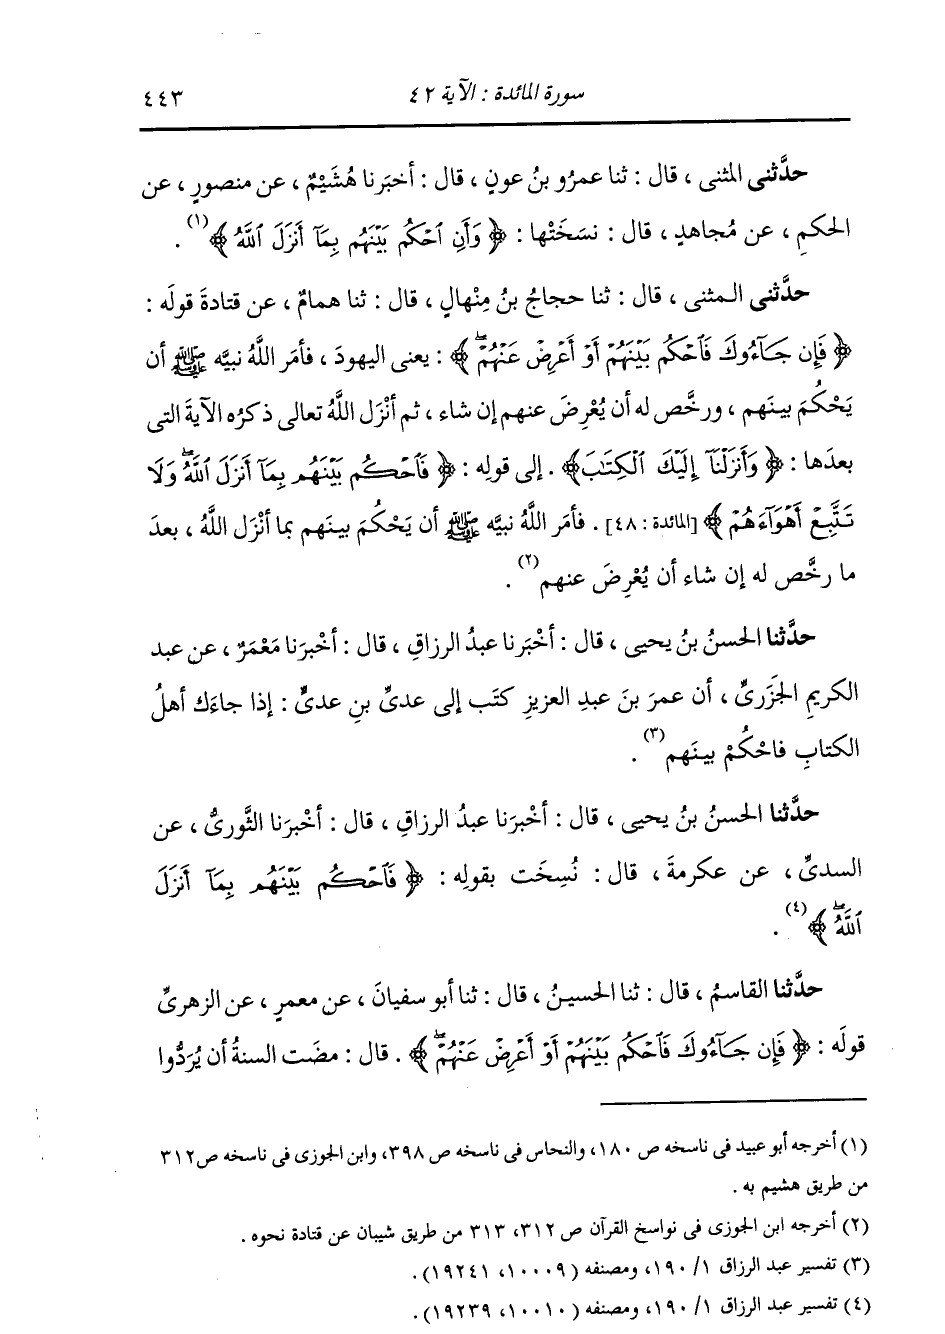 سورة المائدة : الآية ٤٢
٤٤٣
حدَّثنى المثنى ، قال : ثنا عمرُو بنُ عونٍ ، قال : أخبَرنا هُشَيْمٌ ، عن منصورٍ ، عن
الحكمِ ، عن مُجاهدٍ ، قال : نسَخَتْها : ﴿ وَأَنِ ٱحْكُم بَيْنَهُم بِمَآ أَنزَلَ ٱللَّهُ ﴾(١) .
حدَّثنى المثنى ، قال : ثنا حجاجُ بنُ مِنْهالٍ ، قال : ثنا همامٌ ، عن قتادةَ قولَه :
﴿ فَإِن جَآءُوكَ فَٱحْكُم بَيْنَهُمْ أَوْ أَعْرِضْ عَنْهُمْۖ ﴾ : يعنى اليهودَ ، فأمَر اللَّهُ نبيَّه ﷺ أن
يَحْكُمَ بينَهم ، ورخَّص له أن يُعْرِضَ عنهم إن شاء ، ثم أنْزَل اللَّهُ تعالى ذكرُه الآيةَ التى
بعدَها : ﴿ وَأَنزَلْنَآ إِلَيْكَ ٱلْكِتَٰبَ﴾ . إلى قولِه : ﴿ فَٱحْكُم بَيْنَهُم بِمَآ أَنزَلَ ٱللَّهُۖ وَلَا
تَتَّبِعْ أَهْوَآءَهُمْ ﴾ [المائدة : ٤٨] . فأمَر اللَّهُ نبيَّه ﷺ أن يَحْكُمَ بينَهم بما أنْزَل اللَّهُ ، بعدَ
ما رخَّص له إن شاء أن يُعْرِضَ عنهم(٢) .
حدَّثنا الحسنُ بنُ يحيى ، قال : أخْبَرنا عبدُ الرزاقِ ، قال : أخْبرَنا مَعْمَرٌ ، عن عبد
الكريمِ الجَزَرىِّ ، أن عمرَ بنَ عبدِ العزيزِ كتَب إلى عدىِّ بنِ عدىٍّ : إذا جاءَك أهلُ
الكتابِ فاحْكُمْ بينَهم(٣) .
حدَّثنا الحسنُ بنُ يحيى ، قال : أخْبرَنا عبدُ الرزاقِ ، قال : أخْبرَنا الثَّورىُّ ، عن
السدىِّ ، عن عكرمةَ ، قال : نُسِخَت بقولِه : ﴿ فَٱحْكُم بَيْنَهُم بِمَآ أَنزَلَ
ٱللَّهُۖ ﴾(٤) .
حدَّثنا القاسمُ ، قال : ثنا الحسينُ ، قال : ثنا أبو سفيانَ ، عن معمرٍ ، عن الزهرىِّ
قولَه : ﴿ فَإِن جَآءُوكَ فَٱحْكُم بَيْنَهُمْ أَوْ أَعْرِضْ عَنْهُمْۖ ﴾ . قال : مضَت السنةُ أن يُرَدُّوا
(١) أخرجه أبو عبيد فى ناسخه ص ١٨٠، والنحاس فى ناسخه ص ٣٩٨، وابن الجوزى فى ناسخه ص٣١٢
من طريق هشيم به .
(٢) أخرجه ابن الجوزى فى نواسخ القرآن ص ٣١٢، ٣١٣ من طريق شيبان عن قتادة نحوه .
(٣) تفسير عبد الرزاق ١/ ١٩٠، ومصنفه (١٠٠٠٩، ١٩٢٤١).
(٤) تفسير عبد الرزاق ١/ ١٩٠، ومصنفه (١٠٠١٠، ١٩٢٣٩).